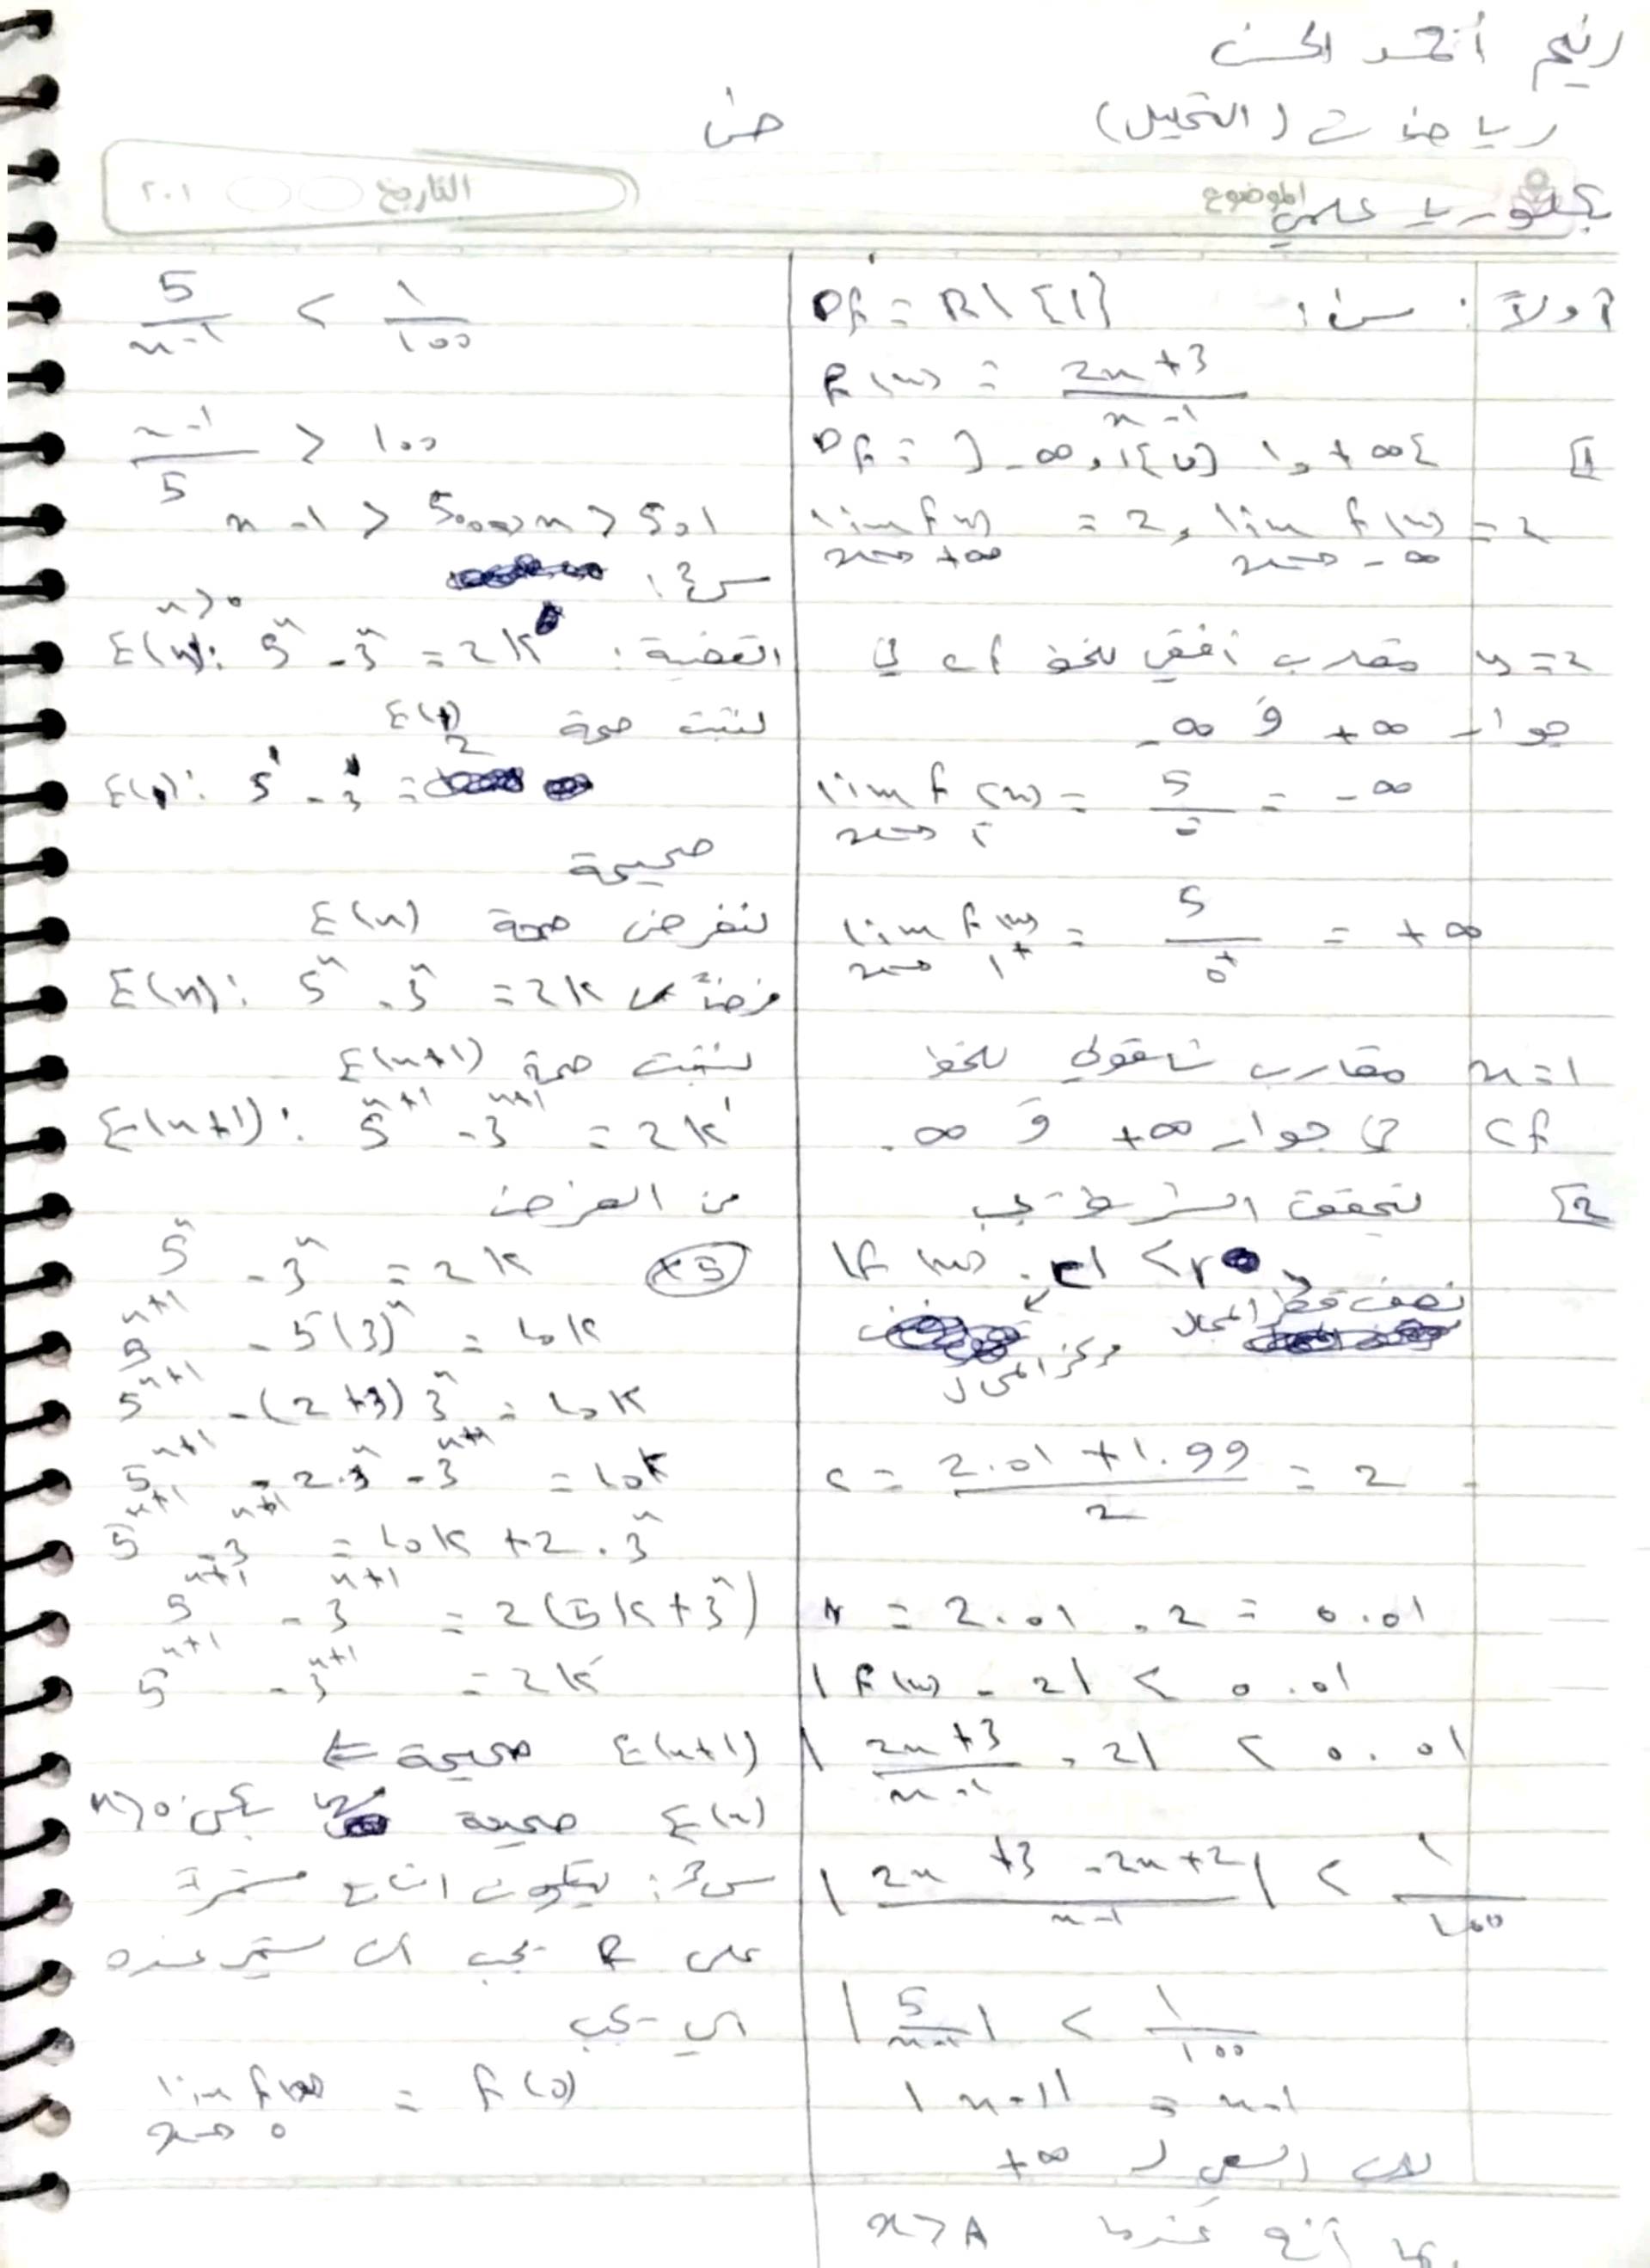 رنيم أحمد الحسن
رياضيات (التحليل)
حمص
بكلوريا علمي
الموضوع
التاريخ
٢٠١
أولاً: س1: Df = R\{1}
f(x) = 2x+3 / x-1
1] Df = ]-∞, 1[ ∪ ] 1, +∞[
lim f(x) x→+∞ = 2, lim f(x) x→-∞ = 2
y=2 مقارب أفقي للخط cf في
جوار +∞ و -∞
lim f(x) x→1⁻ = 5/0⁻ = -∞
lim f(x) x→1⁺ = 5/0⁺ = +∞
x=1 مقارب شاقولي للخط
cf في جوار +∞ و -∞
2] لتحقق الشرط يجب
|f(x) - c| < r
نصف قطر المجال
مركز المجال
c = 2.01 + 1.99 / 2 = 2
r = 2.01 - 2 = 0.01
|f(x) - 2| < 0.01
| 2x+3 / x-1 - 2| < 0.01
| 2x+3-2x+2 / x-1 | < 1/100
| 5 / x-1 | < 1/100
|x-1| = x-1
لأن السعي لـ +∞
بما أنه عندما x>A
5 / x-1 < 1/100
x-1 / 5 > 100
x-1 > 500 ⇒ x > 501
س2:
القضية: E(n): 5ⁿ - 3ⁿ = 2k
n>0
لنثبت صحة E(1)
E(1): 5¹ - 3¹ = 2
صحيحة
لنفرض صحة E(n)
E(n): 5ⁿ - 3ⁿ = 2k فرضاً
لنثبت صحة E(n+1)
E(n+1): 5ⁿ⁺¹ - 3ⁿ⁺¹ = 2k'
من الفرض
5ⁿ - 3ⁿ = 2k (×5)
5ⁿ⁺¹ - 5(3)ⁿ = 10k
5ⁿ⁺¹ - (2+3) 3ⁿ = 10k
5ⁿ⁺¹ - 2.3ⁿ - 3ⁿ⁺¹ = 10k
5ⁿ⁺¹ - 3ⁿ⁺¹ = 10k + 2.3ⁿ
5ⁿ⁺¹ - 3ⁿ⁺¹ = 2(5k+3ⁿ)
5ⁿ⁺¹ - 3ⁿ⁺¹ = 2k'
E(n+1) صحيحة ⇐
E(n) صحيحة n>0
س3: ليكون التابع مستمراً
على R يجب أن يستمر عند 0
أي يجب
lim f(x) x→0 = f(0)